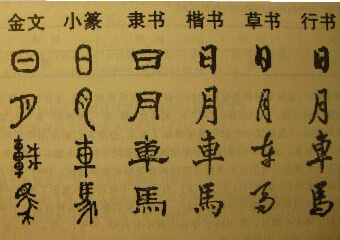 金文 小篆 隶书 楷书 草书 行书
日 日 日 日 日 日
月 月 月 月 月 月
車 車 車 車 車 車
馬 馬 馬 馬 馬 馬